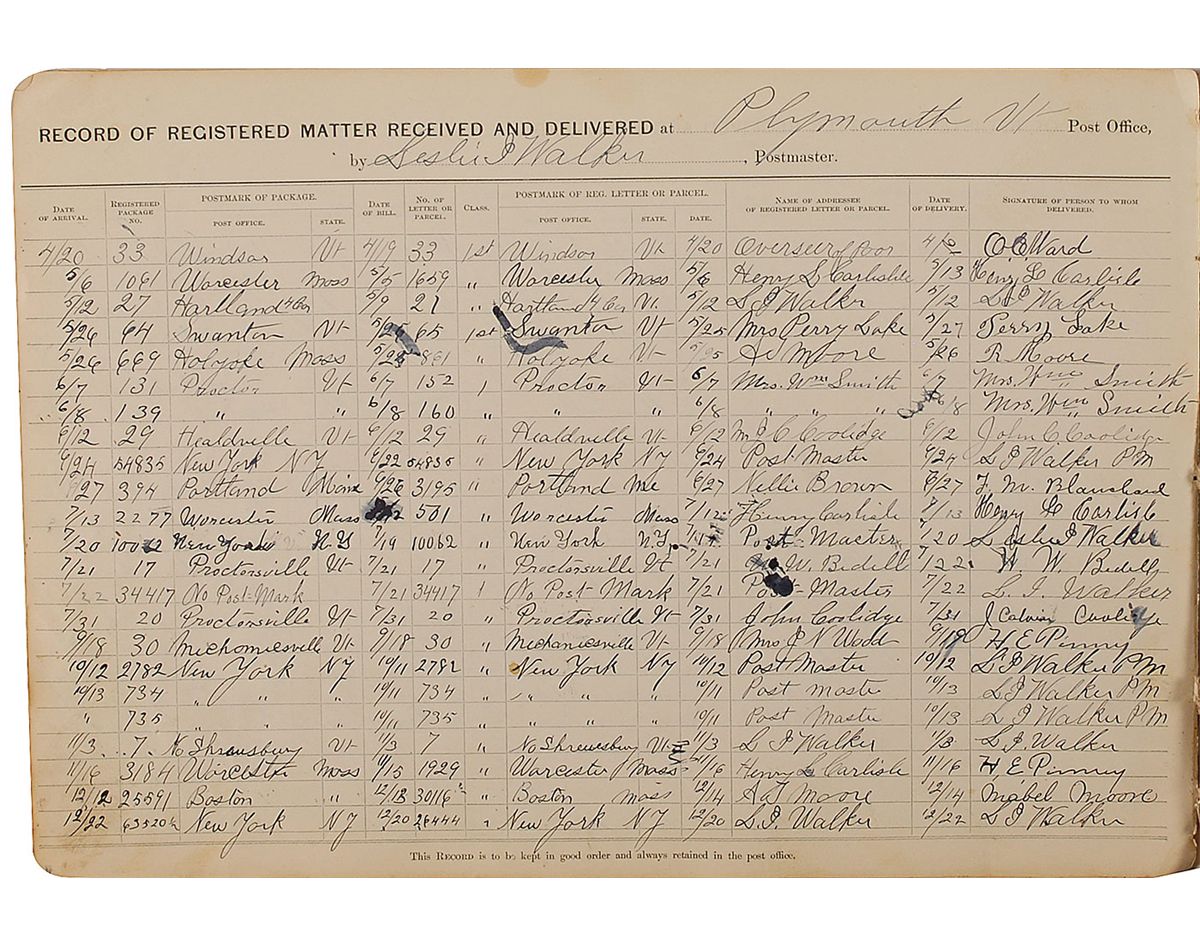 RECORD OF REGISTERED MATTER RECEIVED AND DELIVERED at Plymouth Vt Post Office,
by Leslie I Walker, Postmaster.
DATE OF ARRIVAL. REGISTERED PACKAGE NO. POSTMARK OF PACKAGE. POST OFFICE. STATE. DATE OF BILL. NO. OF LETTER OR PARCEL. CLASS. POSTMARK OF REG. LETTER OR PARCEL. POST OFFICE. STATE. DATE. NAME OF ADDRESSEE OF REGISTERED LETTER OR PARCEL. DATE OF DELIVERY. SIGNATURE OF PERSON TO WHOM DELIVERED.
4/20 33 Windsor Vt 4/19 33 1st Windsor Vt 4/20 Overseer of Poor O E Ward
5/6 1061 Worcester Mass 5/5 1659 " Worcester Mass 5/6 Henry L Carlisle 5/13 Henry L Carlisle
5/12 27 Hartland 4 Cor 5/9 21 " Hartland 4 Cor Vt 5/12 L I Walker 5/12 L I Walker
5/26 64 Swanton Vt 65 1st Swanton Vt 5/25 Mrs Perry Lake 5/27 Perry Lake
5/26 669 Holyoke Mass 861 " Holyoke Vt 5/25 Moore 5/26 R Moore
6/7 131 Proctor Vt 6/7 152 Proctor Vt 6/7 Mrs. Wm Smith 6/7 Mrs. Wm Smith
6/8 139 " " 6/8 160 " " " 6/8 " " " 6/8 Mrs. Wm Smith
6/12 29 Healdville Vt 6/12 29 " Healdville Vt 6/12 C Coolidge 6/12 John C Coolidge
6/24 54835 New York NY 6/22 54835 " New York NY 6/24 Post Master 6/24 L I Walker PM
6/27 394 Portland Maine 6/26 3195 " Portland Me 6/27 Nellie Brown 6/27 F. M. Blanchard
7/13 2277 Worcester Mass 501 " Worcester Mass 7/12 Henry Carlisle 7/13 Henry L Carlisle
7/20 New York N.Y 7/19 10062 " New York N.Y. Post Master 7/20 Leslie I Walker
7/21 17 Proctorsville Vt 7/21 17 " Proctorsville Vt 7/21 W. Bedell 7/22 W. W. Bedell
7/22 34417 No Post-Mark 7/21 34417 No Post Mark 7/21 Post-Master 7/22 L. I. Walker
7/31 20 Proctorsville Vt 7/31 20 " Proctorsville Vt 7/31 John Coolidge 7/31 J Calvin Coolidge
9/18 30 Mechanicsville Vt 9/18 30 " Mechanicsville Vt 9/18 Mrs J N 9/19 H E Pinney
10/12 2782 New York NY 10/11 2782 " New York NY 10/12 Post Master 10/12 L I Walker PM
10/13 734 " " 10/11 734 " " " " 10/11 Post Master 10/13 L I Walker PM
" 735 " " 10/11 735 " " " " 10/11 Post Master 10/13 L I Walker PM
11/3 7 No Shrewsbury Vt 11/3 7 " No Shrewsbury Vt 11/3 L I Walker 11/3 L. I. Walker
11/16 3184 Worcester Mass 11/15 1929 " Worcester Mass 11/16 Henry L Carlisle 11/16 H E Pinney
12/12 25591 Boston " 30116 " Boston Mass 12/14 Moore 12/14 Mabel Moore
12/22 New York NY 12/20 26444 " New York NY 12/20 L. I. Walker 12/22 L I Walker
This RECORD is to be kept in good order and always retained in the post office.